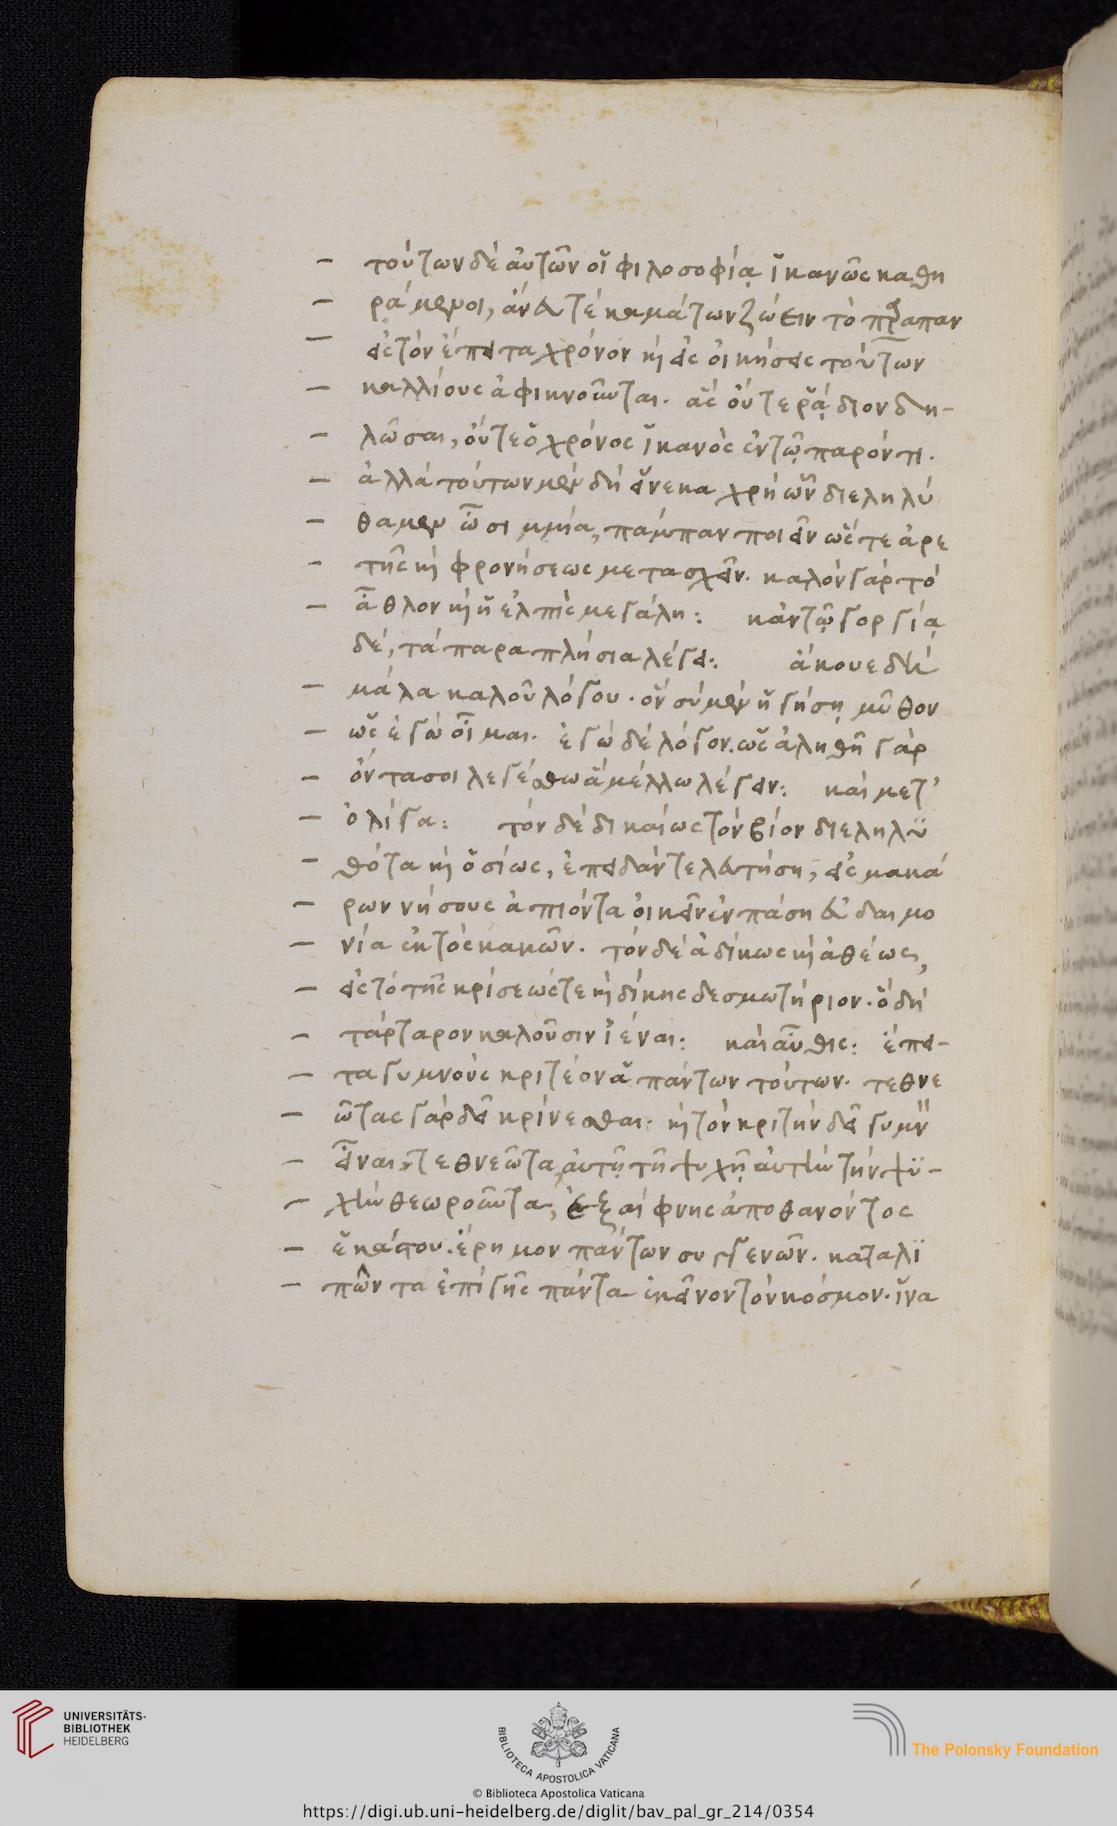 τούτων δὲ αὐτῶν οἱ φιλοσοφίᾳ ἱκανῶς καθη
ράμενοι, ἄνευ τὲ καμάτων ζῶσιν τὸ παράπαν
εἰς τὸν ἔπειτα χρόνον κὶ εἰς οἰκήσεις τούτων
καλλίους ἀφικνοῦνται. ἃς οὔτε ῥᾴδιον δη-
λῶσαι, οὔτε ὁ χρόνος ἱκανὸς ἐν τῷ παρόντι.
ἀλλὰ τούτων μὲν δὴ ἕνεκα χρὴ ὧν διεληλύ
θαμεν ὦ σιμμία, πάμπαν ποιεῖν ὥστε ἀρε
τῆς κὶ φρονήσεως μετασχεῖν. καλὸν γὰρ τὸ
ἆθλον κὶ ἡ ἐλπὶς μεγάλη: κἀν τῷ γοργίᾳ
δέ, τὰ παραπλήσια λέγει: ἄκουε δὴ
μάλα καλοῦ λόγου. ὃν σὺ μὲν ἡγήσῃ μῦθον
ὡς ἐγὼ οἶμαι. ἐγὼ δὲ λόγον. ὡς ἀληθῆ γὰρ
ὄντα σοι λεγέσθω ἃ μέλλω λέγειν: καὶ μετ'
ὀλίγα: τὸν δὲ δικαίως τὸν βίον διεληλϋ
θότα κὶ ὁσίως, ἐπειδὰν τελευτήσῃ, εἰς μακά
ρων νήσους ἀπιόντα οἰκεῖν ἐν πάσῃ εὐδαιμο
νίᾳ ἐκτὸς κακῶν. τὸν δὲ ἀδίκως κὶ ἀθέως,
εἰς τὸ τῆς κρίσεώς τε κὶ δίκης δεσμωτήριον. ὃ δὴ
τάρταρον καλοῦσιν ἰέναι: καὶ αὖθις: ἔπει-
τα γυμνοὺς κριτέον ἁπάντων τούτων. τεθνε
ῶτας γὰρ δεῖ κρίνεσθαι. κὶ τὸν κριτὴν δεῖ γυμν
εἶναι, τεθνεῶτα, αὐτῇ τῇ ψυχῇ αὐτὴν τὴν ψϋ-
χὴν θεωροῦντα, ἐξαίφνης ἀποθανόντος
ἑκάστου. ἔρημον πάντων συγγενῶν. καταλϊ
πῶντα ἐπὶ γῆς πάντα ἐκεῖνον τὸν κόσμον. ἵνα
UNIVERSITÄTS-
BIBLIOTHEK
HEIDELBERG
BIBLIOTECA APOSTOLICA VATICANA
The Polonsky Foundation
© Biblioteca Apostolica Vaticana
https://digi.ub.uni-heidelberg.de/diglit/bav_pal_gr_214/0354